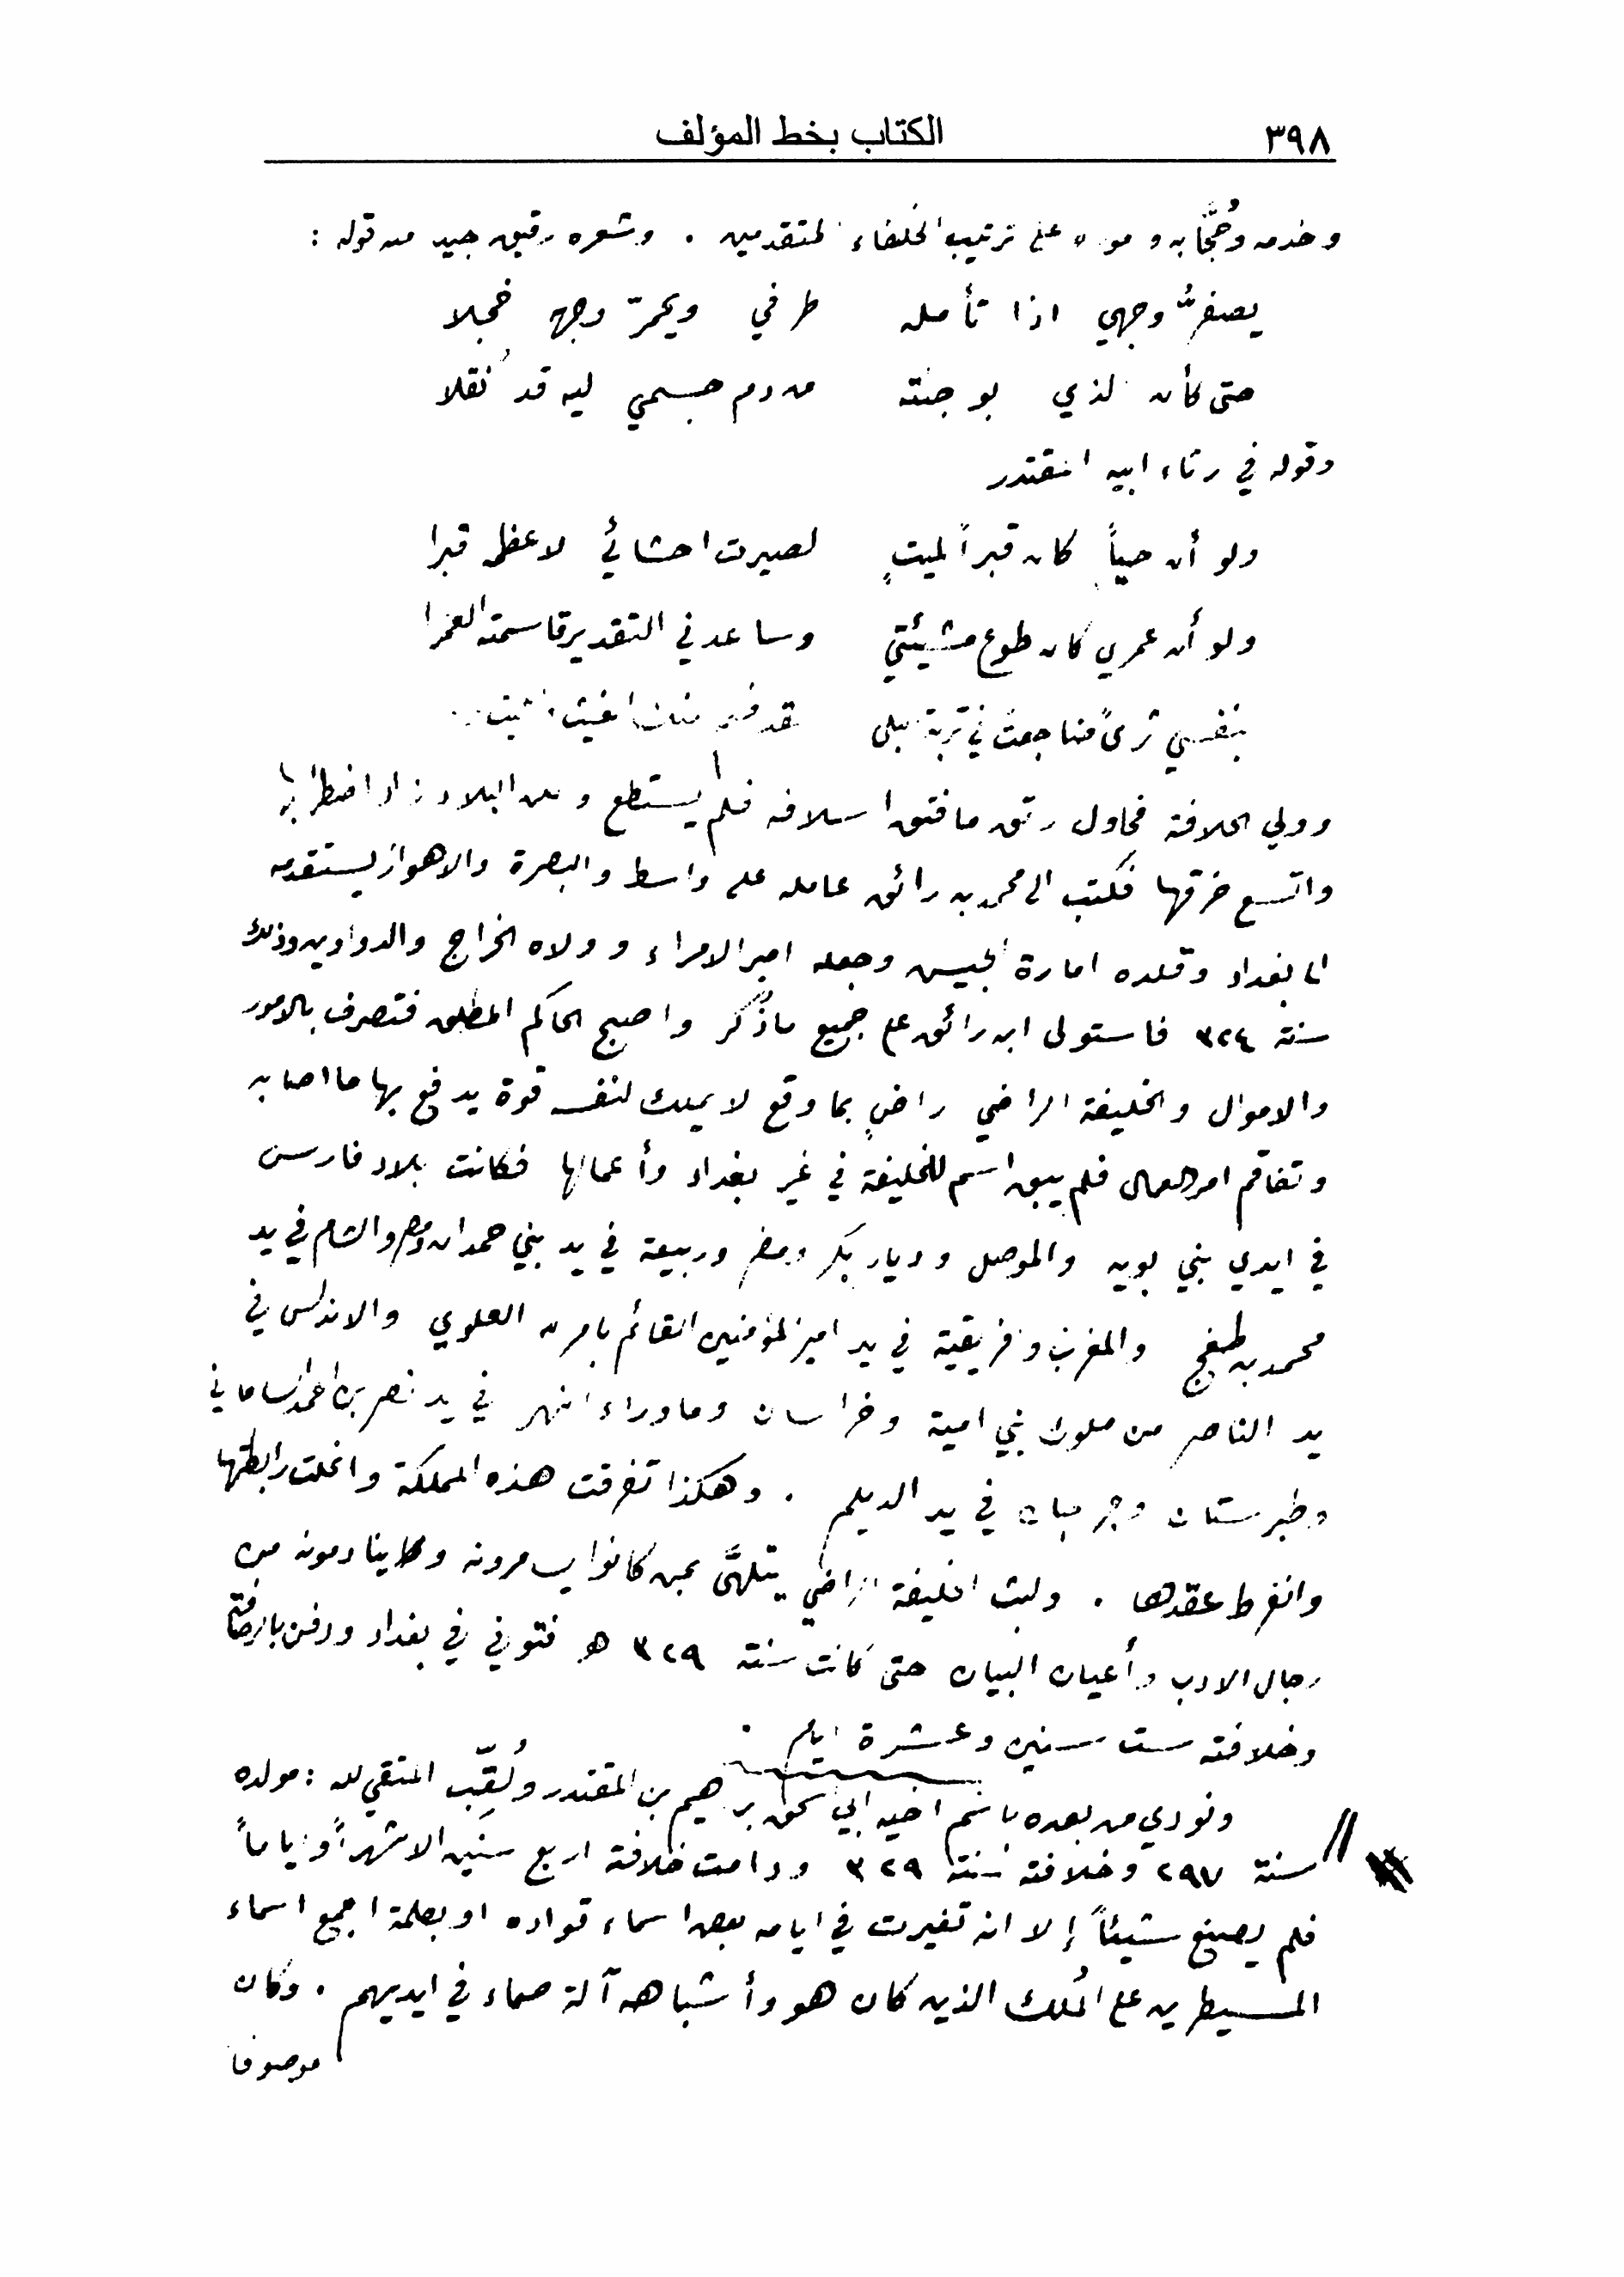 ٣٩٨
الكتاب بخط المؤلف
وخدمه وحُجَّابه و على ترتيب الخلفاء المتقدمين . وشعره رقيق جيد من قوله :
يصفرُّ وجهي اذا تأمله طرفي ويحمرّ وجهه خجلا
حتى كأن الذي بوجنته من دم جسمي اليه قد نُقلا
وقوله في رثاء ابيه المقتدر
ولو أن حياً كان قبراً لميتٍ لصيرت احشائي لاعظمه قبرا
ولو أن عمري كان طوع مشيئتي وساعدني التقدير قاسمته العمرا
بنفسي ثرىً ضاجعت في تربه البلى لقد ضم منك الغيث
وولي الخلافة فحاول رتق ما فتق اسلافه فلم يستطع و البلاد زاد اضطرابها
واتسع خرقها فكتب الى محمد بن رائق عامله على واسط والبصرة والاهواز يستقدمه
الى بغداد وقلده امارة الجيش وجعله امير الامراء وولاه الخراج والدواوين وذلك
سنة ٣٢٤ فاستولى ابن رائق على جميع ما ذُكر واصبح الحاكم المطلق فتصرف بالامور
والاموال والخليفة الراضي راضٍ بما وقع لا يملك لنفسه قوة يدفع بها ما اصابه
وتفاقم امر العمال فلم يبق اسم للخليفة في غير بغداد وأعمالها فكانت بلاد فارس
في ايدي بني بويه والموصل وديار بكر ومضر وربيعة في يد بني حمدان ومصر والشام في يد
محمد بن طغج والمغرب وافريقية في يد امير المؤمنين القائم بامر الله العلوي والاندلس في
يد الناصر من ملوك بني امية وخراسان وما وراء النهر في يد نصر بن احمد الساماني
وطبرستان وجرجان في يد الديلم . وهكذا تفرقت هذه المملكة وانحلت رابطتها
وانفرط عقدها . ولبث الخليفة الراضي يتلهَّى بمن كانوا يسامرونه وينادمونه من
رجال الادب وأعيان البيان حتى كانت سنة ٣٢٩ هـ فتوفي في بغداد ودفن بالرصافة
وخلافته ست سنين وعشرة ايام .
ونودي من بعده باسم اخيه ابي اسحق ابرهيم بن المقتدر ولُقِّب المتقي لله : مولده
سنة ٢٩٧ وخلافته سنة ٣٢٩ ودامت خلافته اربع سنين الا شهراً واياماً
فلم يصنع شيئاً إلا انه تغيرت في ايامه بعض اسماء قواده او بكلمة اجمع اسماء
المسيطرين على المُلك الذين كان هو وأشباهه آلة صماء في ايديهم . وكان
موصوفا